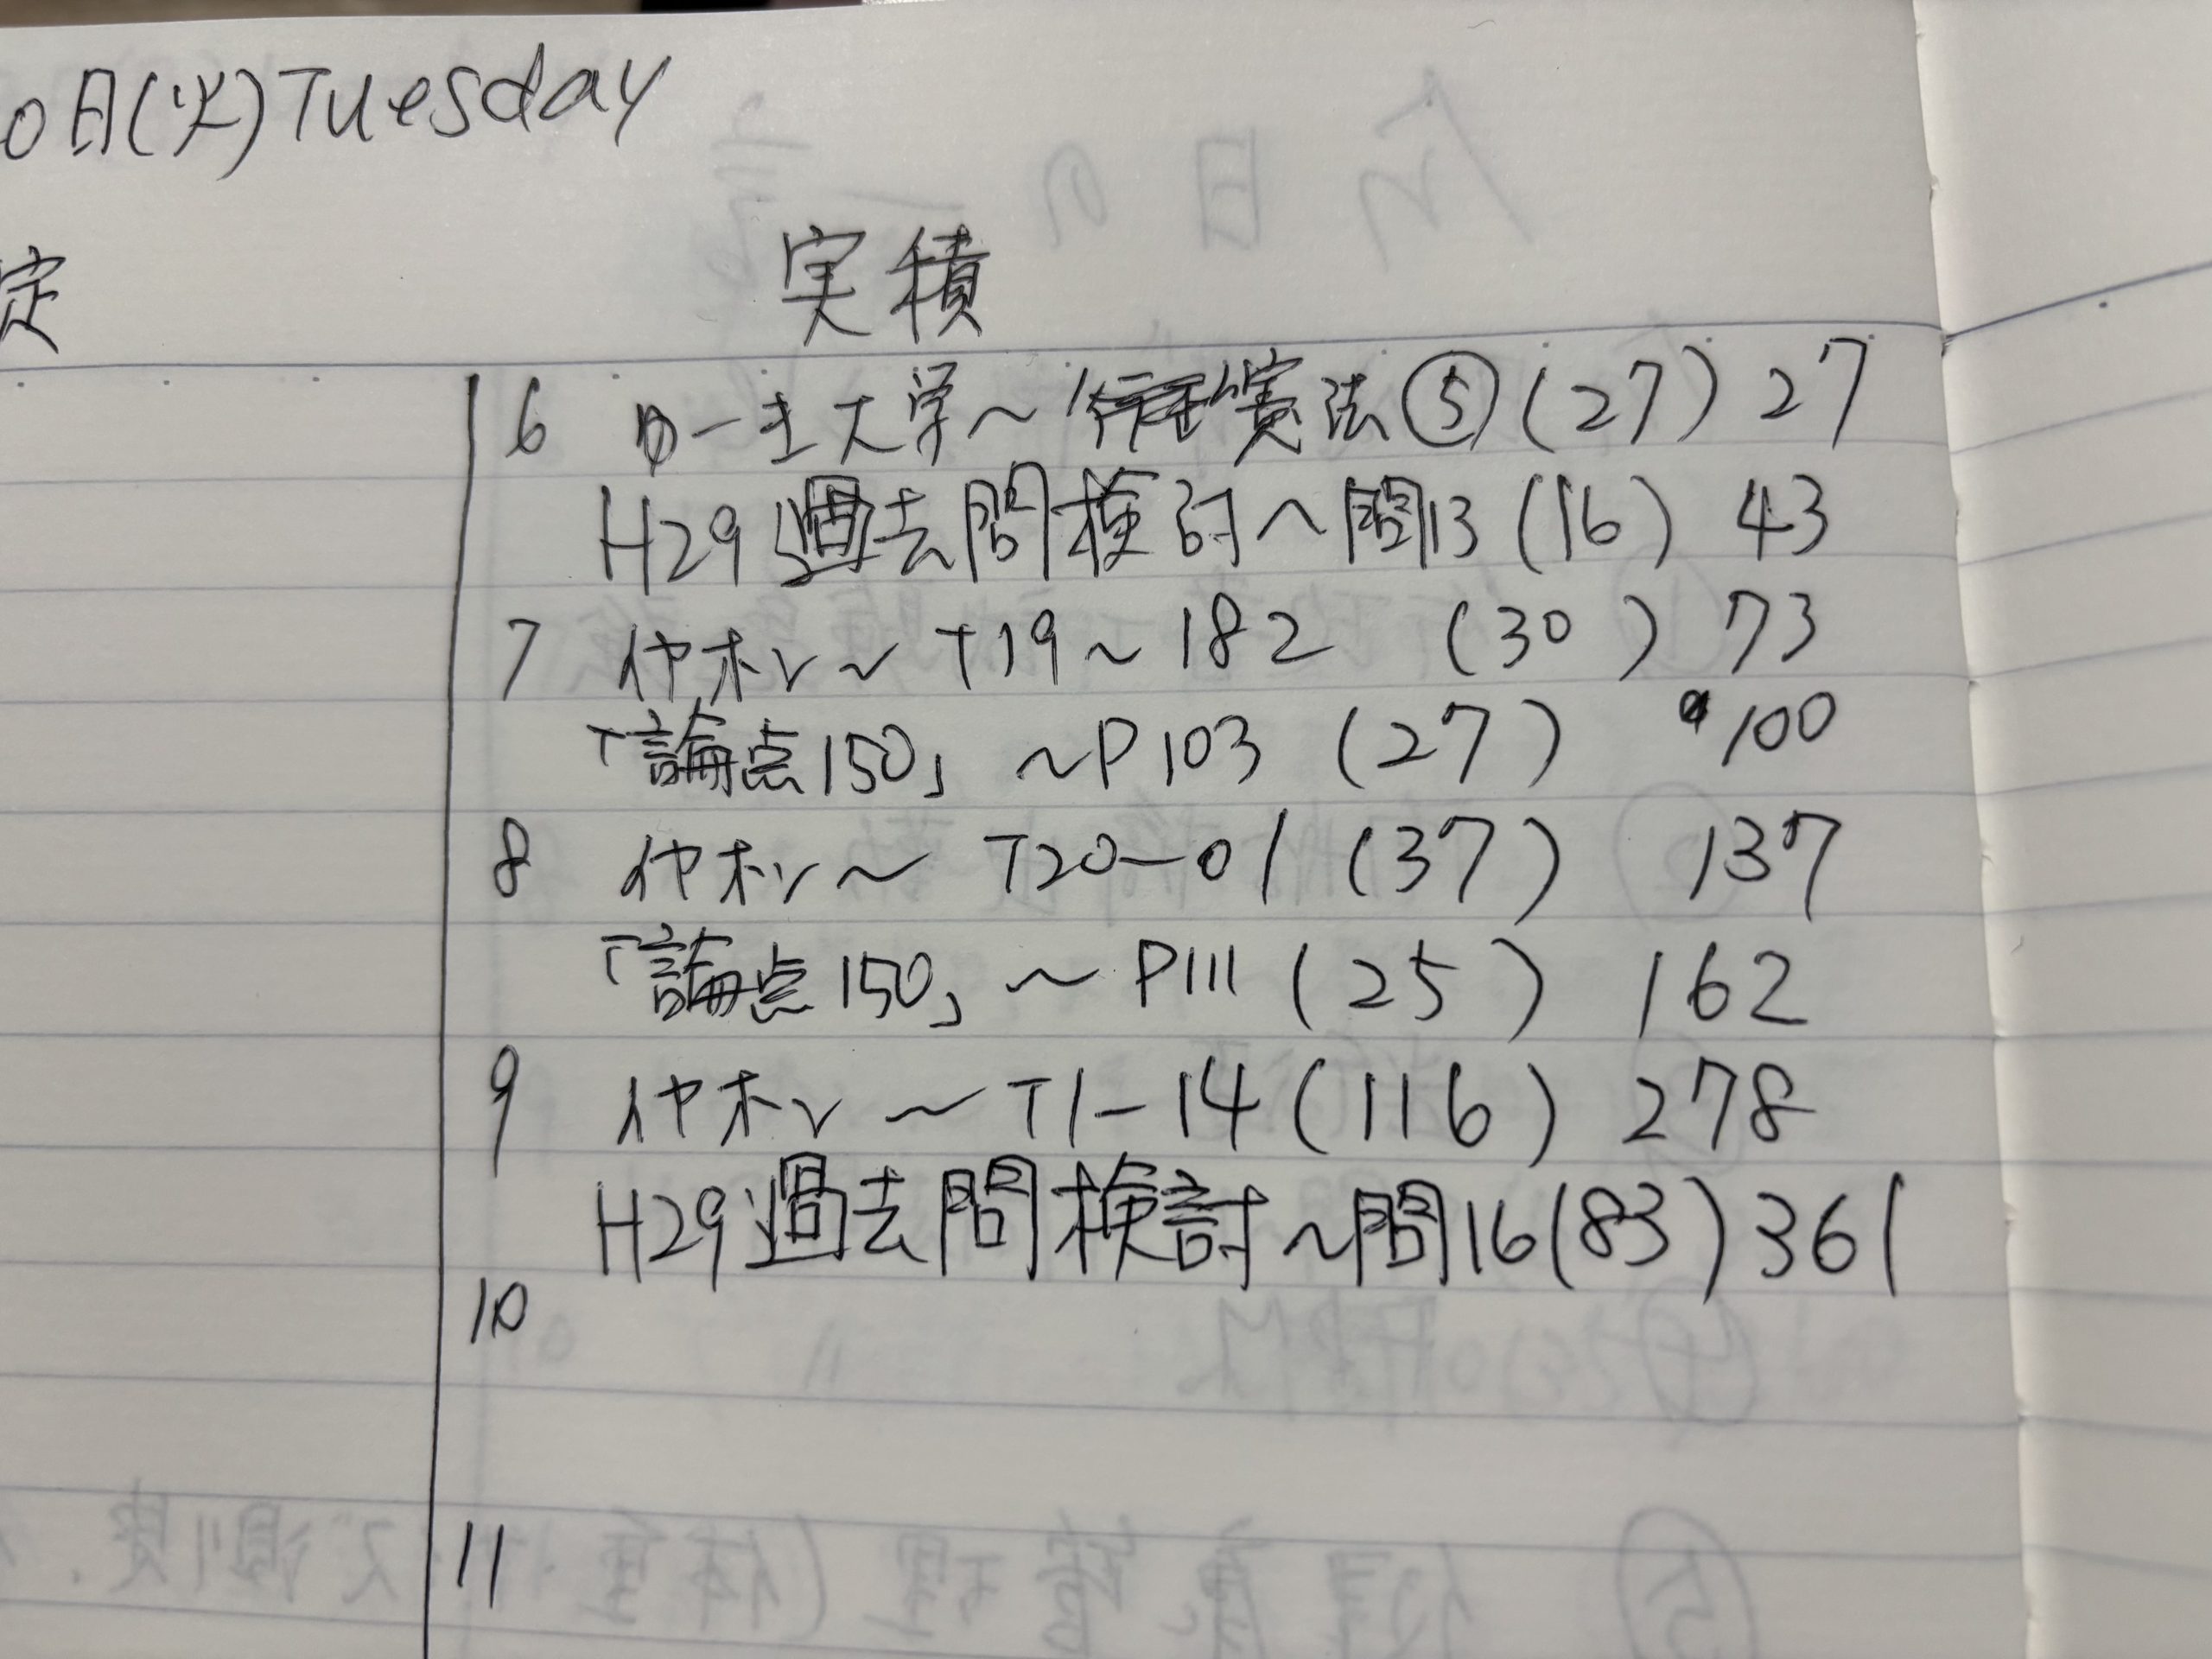 0日(火)Tuesday
定
実積
6 ロー主大学〜憲法⑤(27) 27
H29過去問検討〜問13(16) 43
7 イヤホン〜T19〜182 (30) 73
「論点150」〜P103(27) 100
8 イヤホン〜T20-01(37) 137
「論点150」〜P111(25) 162
9 イヤホン〜T1-14(116) 278
H29過去問検討〜問16(83)361
10
11